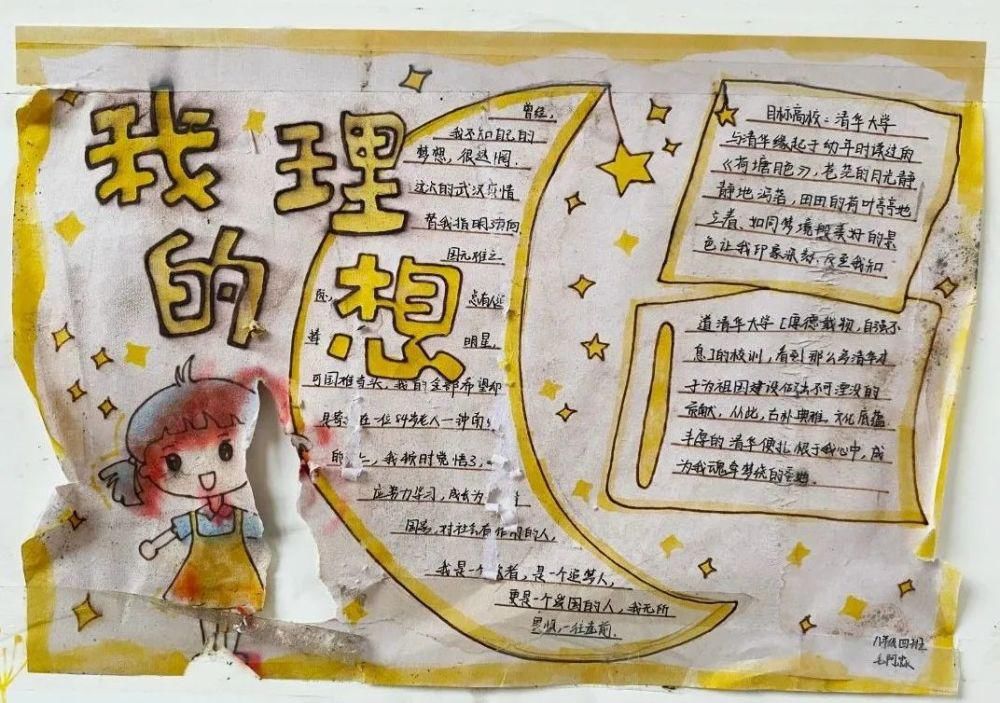 我的理想
曾经,
我不知自己的
梦想,很迷惘.
这次的武汉疫情
替我指明方向
国先
点有
明星,
可国难当头,我的全部希望却
在一位84岁老人一钟南
的 ,我顿时觉悟了,
应努力学习,成长为
国家,对社会有 的人,
我是一个 者,是一个追梦人,
更是一个爱国的人,我无所
畏惧,一往直前.
目标高校:清华大学
与清华缘起于幼年时读过的
《荷塘月色》,苍茫的月光静
静地泻着,田田的荷叶亭亭地
立着,如同梦境般美好的景
色让我印象深刻,及至我知
道清华大学[厚德载物,自强不
息]的校训,看到那么多清华才
子为祖国建设做出不可湮没的
贡献,从此,古朴典雅,文化底蕴
丰厚的清华便扎根于我心中,成
为我魂牵梦绕的圣地.
八年级四班